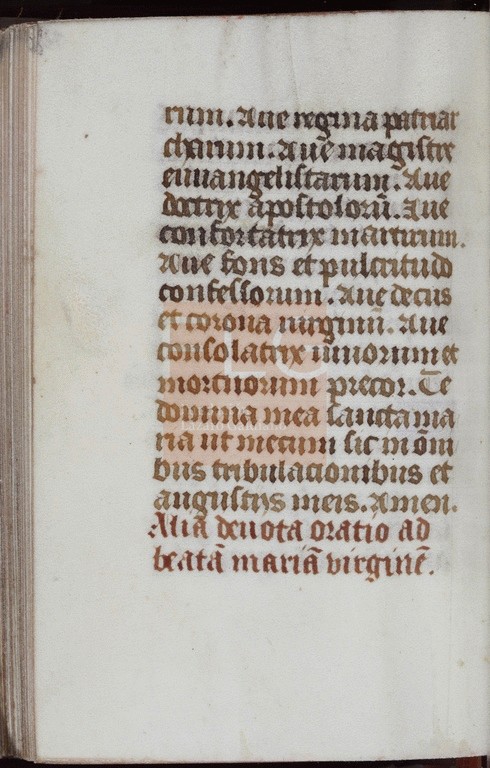 rum. Aue regina patriar
charum. Aue magistre
euuangelistarum. Aue
doctrix apostolorū. Aue
confortatrix martirum.
Aue fons et pulcritudo
confessorum. Aue decus
et corona uirginū. Aue
consolatrix uiuorum et
mortuorum precor. Te
domina mea sancta ma
ria ut mecum sis in ōm
bus tribulacionibus et
angustijs meis. Amen.
Alia deuota oratio ad
beatā mariā virginē.